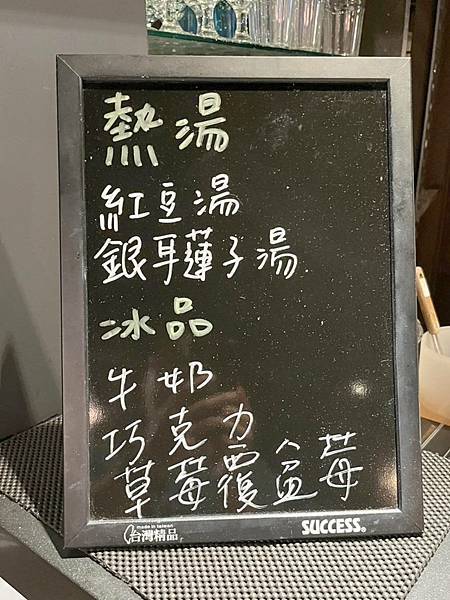 熱湯
紅豆湯
銀耳蓮子湯
冰品
牛奶
巧克力
草莓覆盆莓
made in taiwan
台灣精品
SUCCESS®